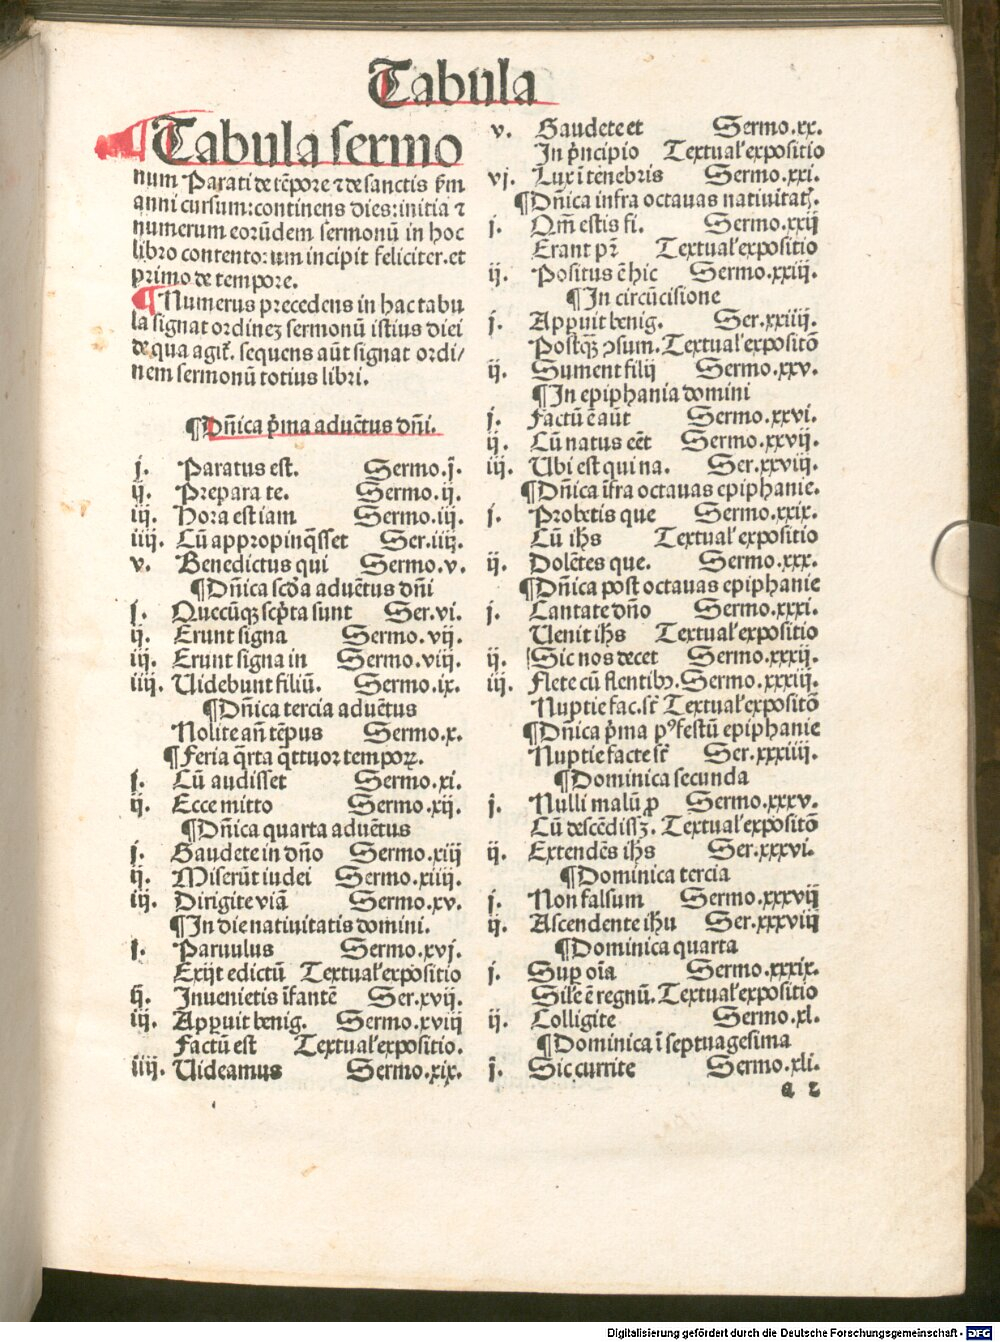 Tabula
¶Tabula sermo
num Parati de tēpore ⁊ de sanctis ꝑ̄m
anni cursum: continens dies: initia ⁊
numerum eorūdem sermonū in hoc
libro contentorum incipit feliciter. et
primo de tempore.
¶Numerus precedens in hac tabu
la signat ordinez sermonū istius diei
de qua agit᷑. sequens aūt signat ordi/
nem sermonū totius libri.
¶Dn̄ica p̄ma aduētus dn̄i.
j. Paratus est. Sermo.j.
ij. Prepara te. Sermo.ij.
iij. Hora est iam Sermo.iij.
iiij. Cū appropinq̄sset Ser.iiij.
v. Benedictus qui Sermo.v.
¶Dn̄ica scd̄a aduētus dn̄i
j. Quecūqꝫ scp̄ta sunt Ser.vi.
ij. Erunt signa Sermo.vij.
iij. Erunt signa in Sermo.viij.
iiij. Uidebunt filiū. Sermo.ix.
¶Dn̄ica tercia aduētus
Nolite an̄ tēpus Sermo.x.
¶Feria q̄rta q̄ttuor temporꝝ.
j. Cū audisset Sermo.xi.
ij. Ecce mitto Sermo.xij.
¶Dn̄ica quarta aduētus
j. Gaudete in dn̄o Sermo.xiij
ij. Miserūt iudei Sermo.xiiij.
iij. Dirigite viā Sermo.xv.
¶In die natiuitatis domini.
j. Paruulus Sermo.xvj.
Exijt edictū Textual᷑ expositio
ij. Inuenietis īfantē Ser.xvij.
iij. Apꝑuit benig. Sermo.xviij
Factū est Textual᷑ expositio.
iiij. Uideamus Sermo.xix.
v. Gaudete et Sermo.xx.
In p̄ncipio Textual᷑ expositio
vj. Lux ī tenebris Sermo.xxi.
¶Dn̄ica infra octauas natiuitat᷑.
j. Qm̄ estis fi. Sermo.xxij
Erant pr̄ Textual᷑ expositio
ij. Positus ē hic Sermo.xxiij.
¶In circūcisione
j. Apꝑuit benig. Ser.xxiiij.
Postqꝫ ꝯsum. Textual᷑ expositō
ij. Sument filij Sermo.xxv.
¶In epiphania domini
j. Factū ē aūt Sermo.xxvi.
ij. Cū natus eēt Sermo.xxvij.
iij. Ubi est qui na. Ser.xxviij.
¶Dn̄ica īfra octauas epiphanie.
j. Probetis que Sermo.xxix.
Cū ih̄s Textual᷑ expositio
ij. Dolētes que. Sermo.xxx.
¶Dn̄ica post octauas epiphanie
j. Cantate dn̄o Sermo.xxxi.
Uenit ih̄s Textual᷑ expositio
ij. Sic nos decet Sermo.xxxij.
iij. Flete cū flentibꝰ. Sermo.xxxiij.
Nuptie fac. st̄ Textual᷑ expositō
¶Dn̄ica p̄ma pꝰ festū epiphanie
Nuptie facte st̄ Ser.xxxiiij.
¶Dominica secunda
j. Nulli malū ꝓ Sermo.xxxv.
Cū descēdissꝫ. Textual᷑ expositō
ij. Extendēs ih̄s Ser.xxxvi.
¶Dominica tercia
j. Non falsum Sermo.xxxvij
ij. Ascendente ih̄u Ser.xxxviij
¶Dominica quarta
j. Suꝑ oīa Sermo.xxxix.
Sil᷑e ē regnū. Textual᷑ expositio
ij. Colligite Sermo.xl.
¶Dominica ī septuagesima
j. Sic currite Sermo.xli.
a 2
Digitalisierung gefördert durch die Deutsche Forschungsgemeinschaft - DFG